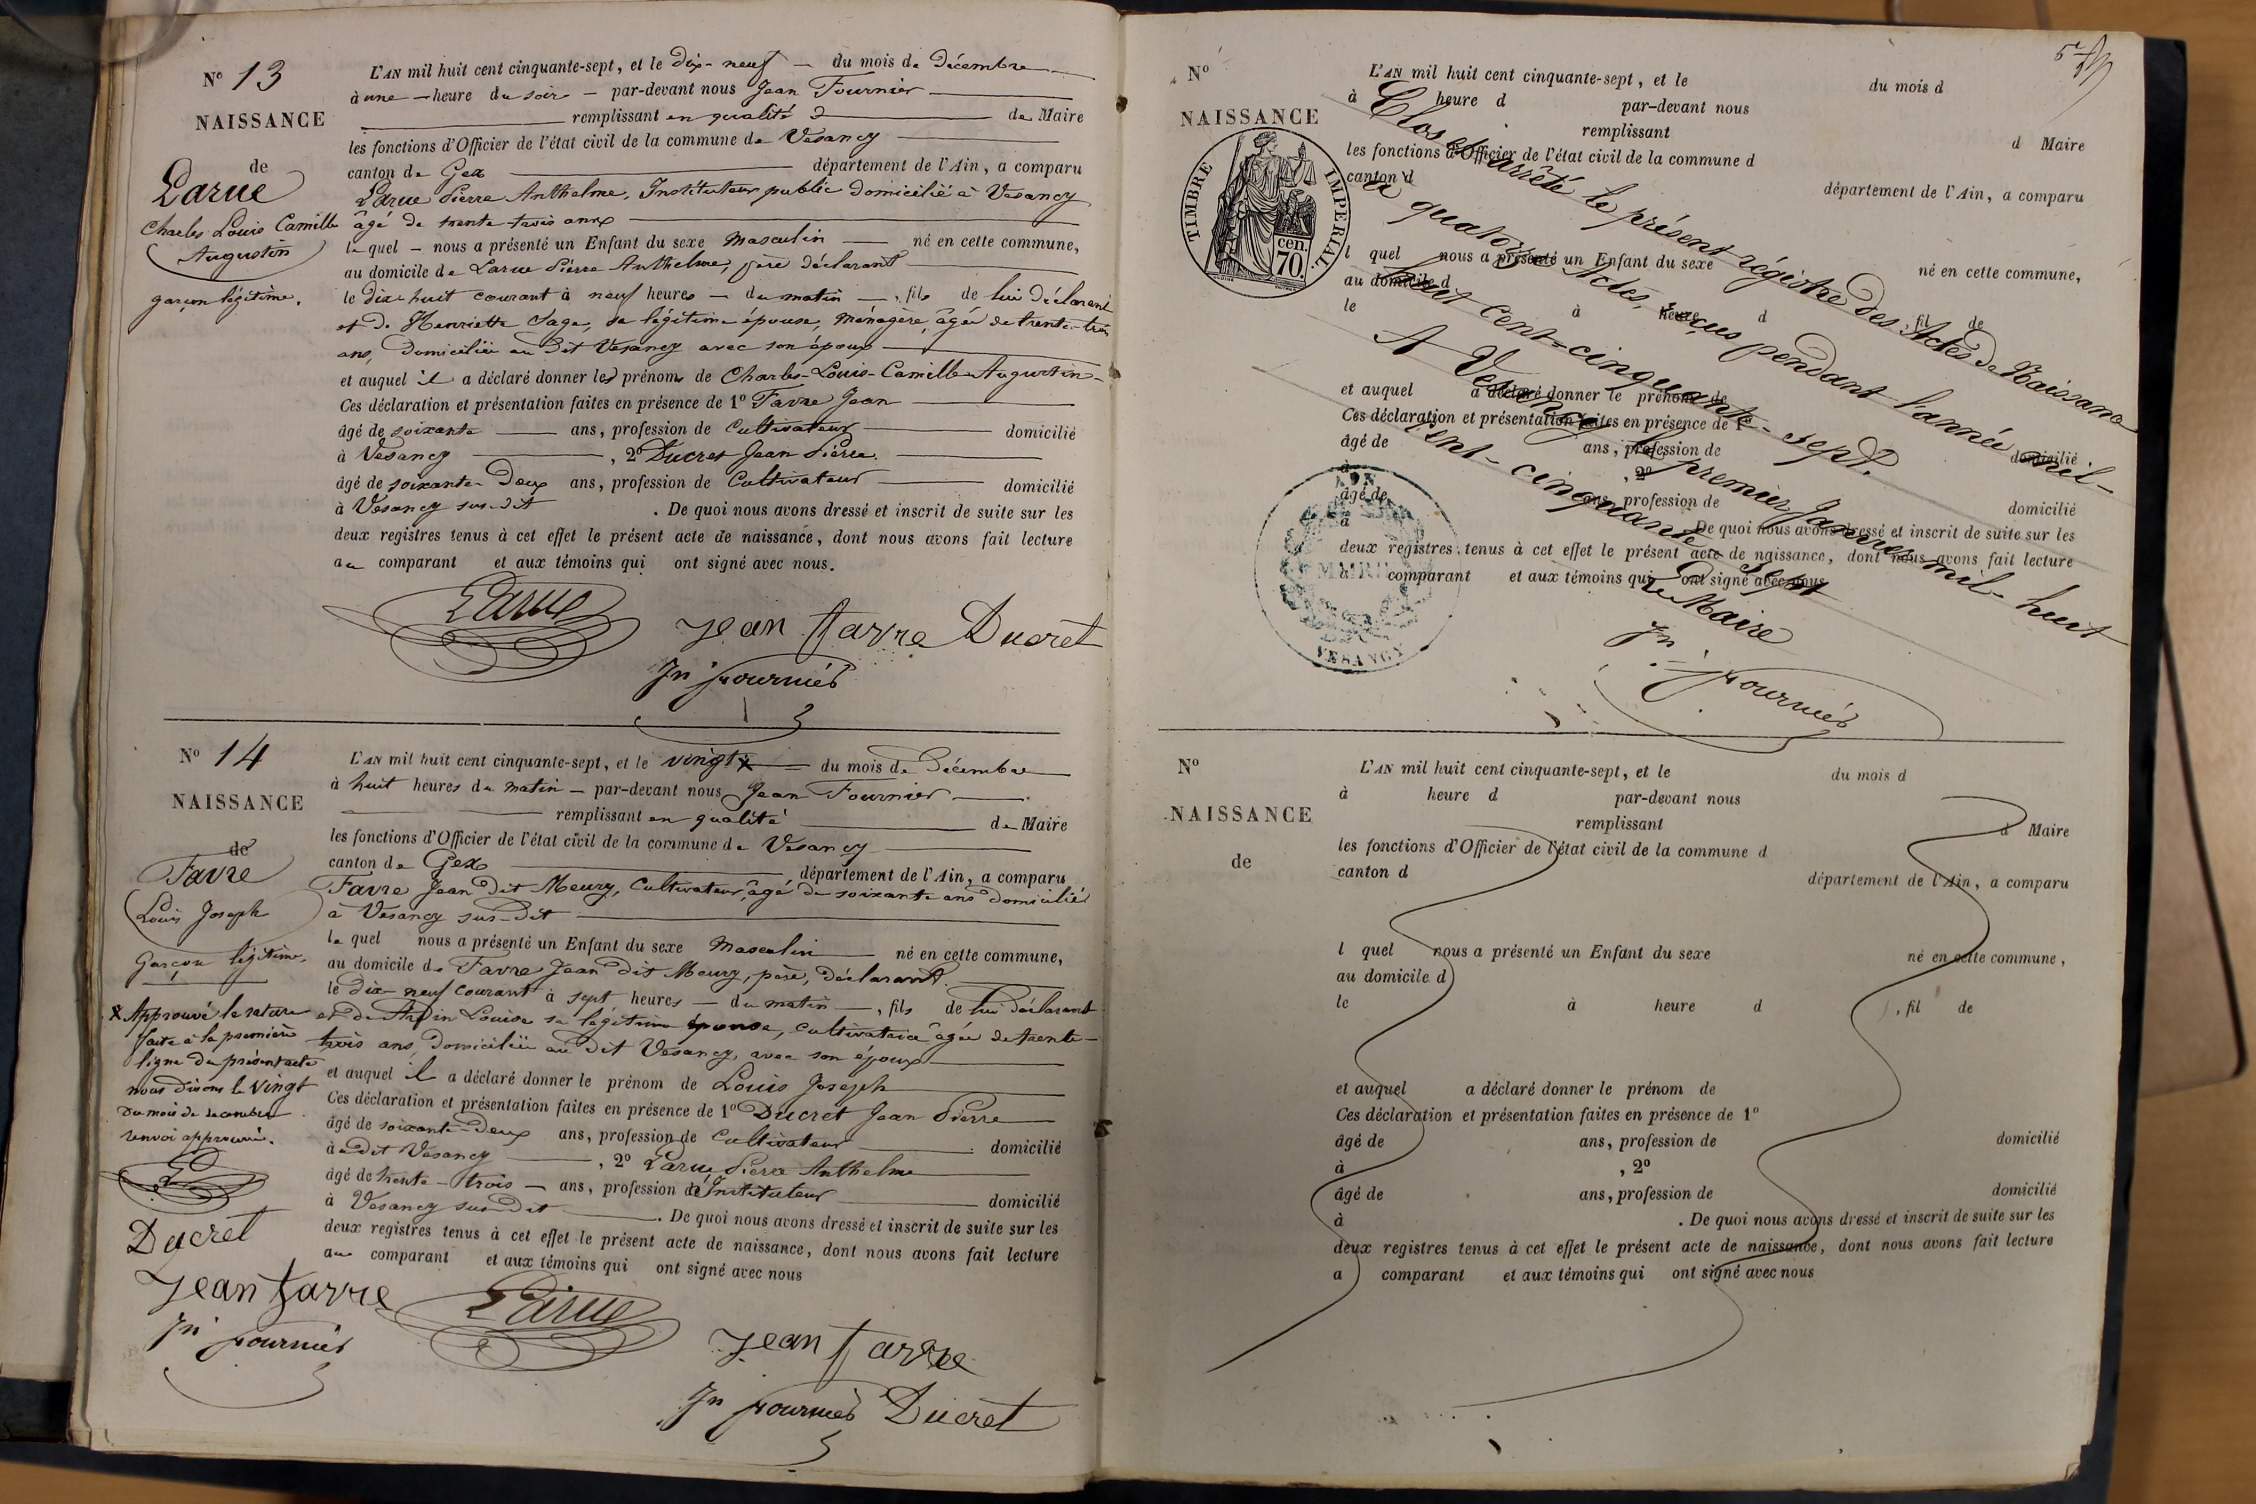 N° 13
NAISSANCE
de
Larue
Charles Louis Camille
Augustin
garçon légitime.
L'AN mil huit cent cinquante-sept, et le dix-neuf du mois de Décembre
à une heure du soir par-devant nous Jean Fournier
remplissant en qualité de Maire
les fonctions d'Officier de l'état civil de la commune de Vesancy
canton de Gex département de l'Ain, a comparu
Larue Pierre Anthelme, Instituteur public domicilié à Vesancy
âgé de trente-trois ans
lequel nous a présenté un Enfant du sexe masculin né en cette commune,
au domicile de Larue Pierre Anthelme, père déclarant
le dix-huit courant à neuf heures du matin, fils de lui déclarant
et de Henriette Sage, sa légitime épouse, ménagère, âgée de trente-trois
ans, domiciliée au dit Vesancy avec son époux
et auquel il a déclaré donner les prénoms de Charles-Louis-Camille-Augustin
Ces déclaration et présentation faites en présence de 1° Favre Jean
âgé de soixante ans, profession de Cultivateur domicilié
à Vesancy, 2° Ducret Jean Pierre
âgé de soixante-deux ans, profession de Cultivateur domicilié
à Vesancy sus-dit. De quoi nous avons dressé et inscrit de suite sur les
deux registres tenus à cet effet le présent acte de naissance, dont nous avons fait lecture
au comparant et aux témoins qui ont signé avec nous.
Larue
Jean favre Ducret
Jn fournier
N° 14
NAISSANCE
de
Favre
Louis Joseph
Garçon légitime.
X Approuvé la rature
faite à la première
ligne du présent acte
nous disons le vingt
du mois de décembre
renvoi approuvé.
Ducret
Jean favre
Jn fournier
L'AN mil huit cent cinquante-sept, et le vingt X du mois de Décembre
à huit heures du matin par-devant nous Jean Fournier
remplissant en qualité de Maire
les fonctions d'Officier de l'état civil de la commune de Vesancy
canton de Gex département de l'Ain, a comparu
Favre Jean dit Meury, Cultivateur, âgé de soixante ans domicilié
à Vesancy sus-dit
lequel nous a présenté un Enfant du sexe masculin né en cette commune,
au domicile de Favre Jean dit Meury, père, déclarant.
le dix-neuf courant à sept heures du matin, fils de lui déclarant
et de Louise sa légitime épouse, cultivatrice âgée de trente-
trois ans, domiciliée au dit Vesancy, avec son époux
et auquel il a déclaré donner le prénom de Louis Joseph
Ces déclaration et présentation faites en présence de 1° Ducret Jean Pierre
âgé de soixante-deux ans, profession de Cultivateur domicilié
à dit Vesancy, 2° Larue Pierre Anthelme
âgé de trente-trois ans, profession d'Instituteur domicilié
à Vesancy sus-dit. De quoi nous avons dressé et inscrit de suite sur les
deux registres tenus à cet effet le présent acte de naissance, dont nous avons fait lecture
au comparant et aux témoins qui ont signé avec nous
Larue
Jean favre
Jn fournier Ducret
N°
NAISSANCE
TIMBRE IMPERIAL.
cen.
70.
L'AN mil huit cent cinquante-sept, et le du mois d
à heure d par-devant nous
remplissant d Maire
les fonctions d'Officier de l'état civil de la commune d
canton d département de l'Ain, a comparu
l quel nous a présenté un Enfant du sexe né en cette commune,
au domicile d
le à heure d, fil de
et auquel a déclaré donner le prénom de
Ces déclaration et présentation faites en présence de 1°
âgé de ans, profession de domicilié
à, 2°
âgé de ans, profession de domicilié
à. De quoi nous avons dressé et inscrit de suite sur les
deux registres tenus à cet effet le présent acte de naissance, dont nous avons fait lecture
a comparant et aux témoins qui ont signé avec nous
Clos et arrêté le présent régistre des Actes de Naissance
à quatorze Actes, reçus pendant l'année mil-
huit cent-cinquante-sept.
A Vesancy le premier Janvier mil-huit
cent-cinquante-sept
Le Maire
Jn fournier
MAIRIE
VESANCY
N°
NAISSANCE
de
L'AN mil huit cent cinquante-sept, et le du mois d
à heure d par-devant nous
remplissant d Maire
les fonctions d'Officier de l'état civil de la commune d
canton d département de l'Ain, a comparu
l quel nous a présenté un Enfant du sexe né en cette commune,
au domicile d
le à heure d, fil de
et auquel a déclaré donner le prénom de
Ces déclaration et présentation faites en présence de 1°
âgé de ans, profession de domicilié
à, 2°
âgé de ans, profession de domicilié
à. De quoi nous avons dressé et inscrit de suite sur les
deux registres tenus à cet effet le présent acte de naissance, dont nous avons fait lecture
a comparant et aux témoins qui ont signé avec nous